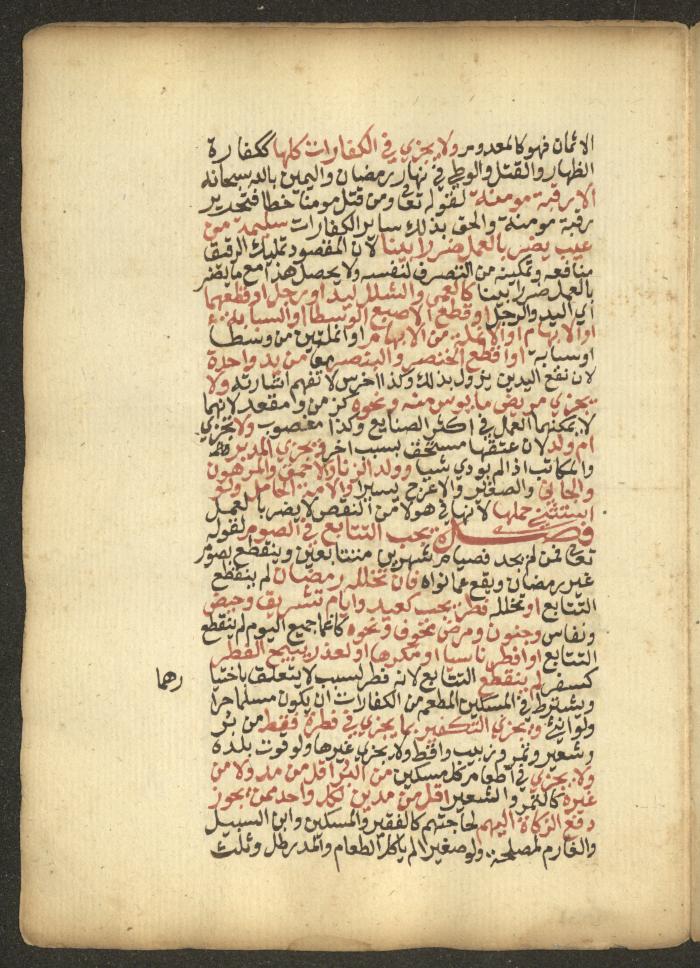 الاثمان فهو كالمعدوم ولا يجزي في الكفارات كلها ككفارة
الظهار والقتل والوطي في نهار رمضان واليمين بالله سبحانه
الا رقبة مومنة لقوله تعا ومن قتل مومنا خطا فتحرير
رقبة مومنة والحق بذلك ساير الكفارات سليمة من
عيب يضر بالعمل ضررا بينا لان المقصود تمليك الرقيق
منافعه وتمكينه من التصرف لنفسه ولا يحصل هذا مع ما يضر
بالعمل ضررا بينا كالعمى والشلل ليد او رجل او قطعهما
اي اليد والرجل او قطع الاصبع الوسطا او السبابة
او الابهام او الانملة من الابهام او انملتين من وسطا
او سبابة او اقطع الخنصر والبنصر معا من يد واحدة
لان نفع اليدين يزول بذلك وكذا اخرس لا تفهم اشارته ولا
يجزي مريض مايوس منه ونحوه كزمن ومقعد لانهما
لا يمكنهما العمل في اكثر الصنايع وكذا مغصوب ولا تجزي
ام ولد لان عتقها مستحق بسبب اخر ويجزي المدبر
والمكاتب اذا لم يودي شيا وولد الزنا والاحمق والمرهون
والجاني والصغير والاعرج يسيرا والامة الحامل ولو
استثني حملها لانها في هولا من النقص لا يضر بالعمل
فصل يجب التتابع في الصوم لقوله
تعا فمن لم يجد فصيام شهرين متتابعين وينقطع بصوم
غير رمضان ويقع عما نواه فان تخلله رمضان لم ينقطع
التتابع او تخلله فطر يجب كعيد وايام تشريق وحيض
ونفاس وجنون ومرض مخوف ونحوه كاغما جميع اليوم لم ينقطع
التتابع او افطر ناسيا او مكرها او لعذر يبيح الفطر
كسفر لم ينقطع التتابع لانه فطر لسبب لا يتعلق باختيا
رهما
ويشترط في المسكين المطعم من الكفارات ان يكون مسلما حرا
ولو انثى ويجزي التكفير بما يجزي في فطرة فقط من بر
وشعير وتمر وزبيب واقط ولا يجزي غيرها ولو قوت بلده
ولا يجزي في اطعام كل مسكين من البر اقل من مد ولا من
غيره كالتمر والشعير اقل من مدين لكل واحد ممن يجوز
دفع الزكاة اليهم لحاجتهم كالفقير والمسكين وابن السبيل
والغارم لمصلحة ولو صغيرا لم ياكل الطعام والمد رطل وثلث